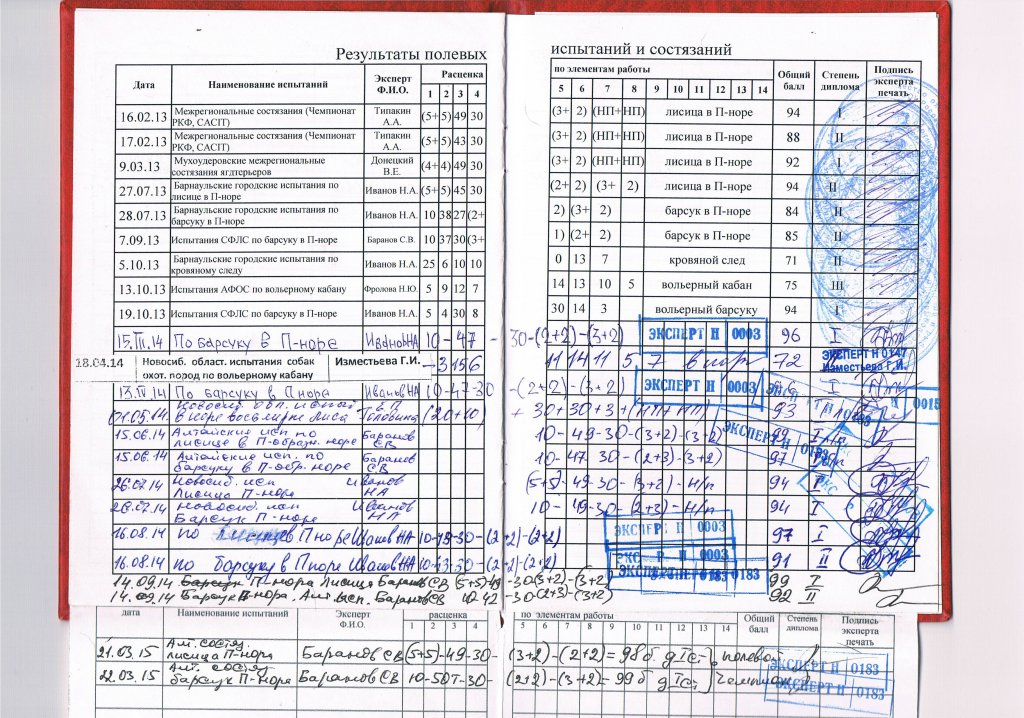 Результаты полевых испытаний и состязаний
Дата Наименование испытаний Эксперт Ф.И.О. Расценка по элементам работы Общий балл Степень диплома Подпись эксперта печать
1 2 3 4 5 6 7 8 9 10 11 12 13 14
16.02.13 Межрегиональные состязания (Чемпионат РКФ, САСІТ) Типакин А.А. (5+ 5) 49 30 (3+ 2) (НП+ НП) лисица в П-норе 94 I
17.02.13 Межрегиональные состязания (Чемпионат РКФ, САСІТ) Типакин А.А. (5+ 5) 43 30 (3+ 2) (НП+ НП) лисица в П-норе 88 II
9.03.13 Мухоудеровские межрегиональные состязания ягдтерьеров Донецкий В.Е. (4+ 4) 49 30 (3+ 2) (НП+ НП) лисица в П-норе 92 I
27.07.13 Барнаульские городские испытания по лисице в П-норе Иванов Н.А. (5+ 5) 45 30 (2+ 2) (3+ 2) лисица в П-норе 94 II
28.07.13 Барнаульские городские испытания по барсуку в П-норе Иванов Н.А. 10 38 27 (2+ 2) (3+ 2) барсук в П-норе 84 II
7.09.13 Испытания СФЛС по барсуку в П-норе Баранов С.В. 10 37 30 (3+ 1) (2+ 2) барсук в П-норе 85 II
5.10.13 Барнаульские городские испытания по кровяному следу Иванов Н.А. 25 6 10 10 0 13 7 кровяной след 71 II
13.10.13 Испытания АФОС по вольерному кабану Фролова Н.Ю. 5 9 12 7 14 13 10 5 вольерный кабан 75 III
19.10.13 Испытания СФЛС по барсуку в П-норе Иванов Н.А. 5 4 30 8 30 14 3 вольерный барсуку 94 I
15.III.14 По барсуку в П-норе Иванов НА 10-47-30-(2+2)-(3+2) ЭКСПЕРТ Н 0003 96 I
18.04.14 Новосиб. област. испытания собак охот. пород по вольерному кабану Изместьева Г.И. 3 15 6 11 14 11 5 7 72 ЭКСПЕРТ Н 0147 Изместьева Г.И.
13.IV.14 По барсуку в П норе Иванов НА 10-47-30-(2+2)-(3+2) ЭКСПЕРТ Н 0003 96 I
01.05.14 93 I ЭКСПЕРТ Н 0183
15.06.14 Алтайские исп по лисице в П-образн. норе Баранов СВ 10-49-30-(3+2)-(3+2) ЭКСПЕРТ Н 0183 99 I
15.06.14 Алтайские исп. по барсуку в П-обр. норе Баранов СВ 10-47-30-(2+3)-(3+2) 97 I
26.07.14 Новосиб. исп Лисица П-нора Иванов НА (5+5)-49-30-(3+2)-Н/п 94 I
26.07.14 Новосиб. исп Барсук П-норе Иванов НА 10-49-30-(2+3)-Н/п 94 I
16.08.14 по лисице в П норе Иванов НА 10-49-30-(2+2)-(2+2) ЭКСПЕРТ Н 0003 97 I
16.08.14 по барсуку в П норе Иванов НА 10-43-30-(2+2)-(2+2) ЭКСПЕРТ Н 0003 91 II
14.09.14 Барсук П-нора Лисица Баранов СВ (5+5) 49-30(3+2)-(3+2) ЭКСПЕРТ Н 0183 99 I
14.09.14 Барсук П-нора. Алт. исп. Баранов СВ 10 42-30(2+3)-(3+2) 92 II
дата Наименование испытаний Эксперт Ф.И.О. расценка по элементам работы Общий балл Степень диплома Подпись эксперта печать
1 2 3 4 5 6 7 8 9 10 11 12 13 14
21.03.15 Ал. состяз. лисица П-нора Баранов СВ (5+5)-49-30-(3+2)-(2+2)=98б д I Ст полевой ЭКСПЕРТ Н 0183
22.03.15 Ал. состяз. барсук П-нора Баранов СВ 10-50-30-(2+2)-(3+2)=99б д I Ст чемпион ЭКСПЕРТ Н 0183